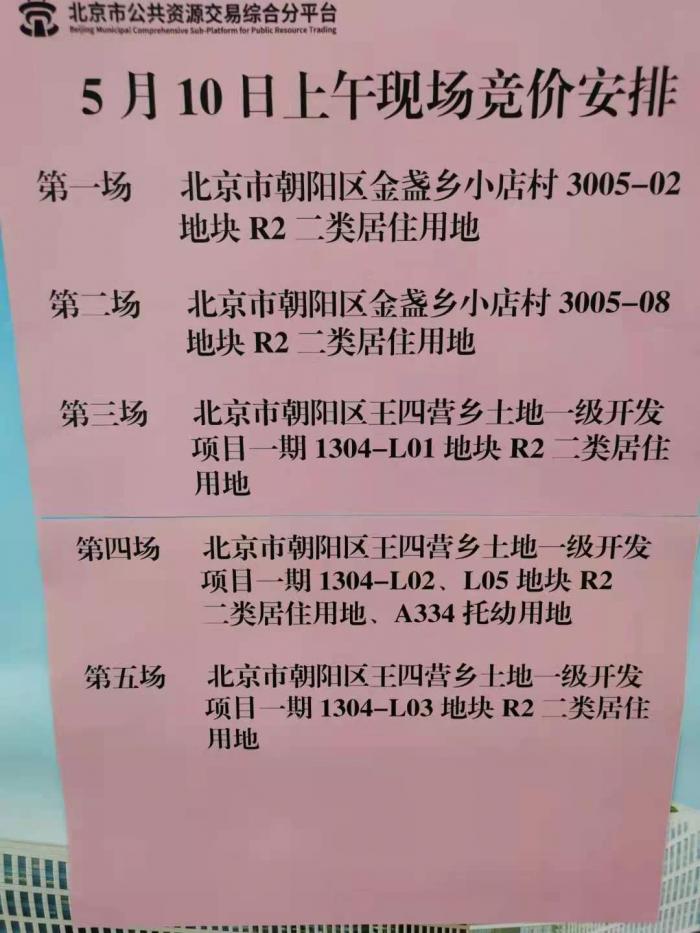 北京市公共资源交易综合分平台
Beijing Municipal Comprehensive Sub-Platform for Public Resource Trading
5月10日上午现场竞价安排
第一场 北京市朝阳区金盏乡小店村 3005-02
地块 R2 二类居住用地
第二场 北京市朝阳区金盏乡小店村 3005-08
地块 R2 二类居住用地
第三场 北京市朝阳区王四营乡土地一级开发
项目一期 1304-L01 地块 R2 二类居住
用地
第四场 北京市朝阳区王四营乡土地一级开发
项目一期 1304-L02、L05 地块 R2
二类居住用地、A334 托幼用地
第五场 北京市朝阳区王四营乡土地一级开发
项目一期 1304-L03 地块 R2 二类居住
用地